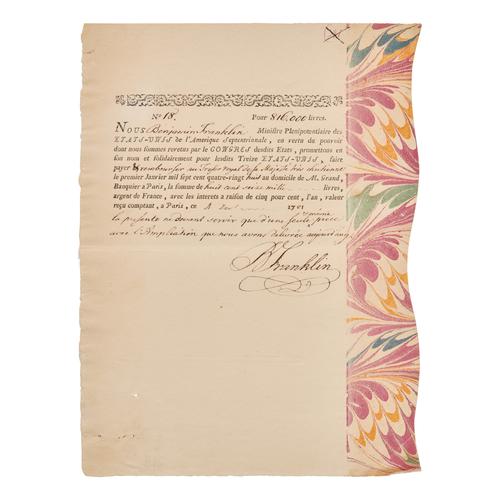 No 18. Pour 816,000 livres.
NOUS Benjamin Franklin Ministre Plenipotentiaire des
ETATS-UNIS de l'Amerique Septentrionale, en vertu du pouvoir
dont nous sommes revetus par le CONGRES desdits Etats, promettons en
son nom et solidairement pour lesdits Treize ETATS-UNIS, faire
payer & rembourser au Tresor royal de Sa Majesté très chretienne
le premier Janvier mil sept cent quatre-vingt huit au domicile de M. Grand,
Banquier a Paris, la somme de huit cent seize mille livres,
argent de France, avec les interets a raison de cinq pour cent, l'an, valeur
reçu comptant, a Paris, ce 1781
la presente ne devant servir que d'une seule et même piece
avec l'Ampliation que nous avons delivrée aujourd'huy
B Franklin